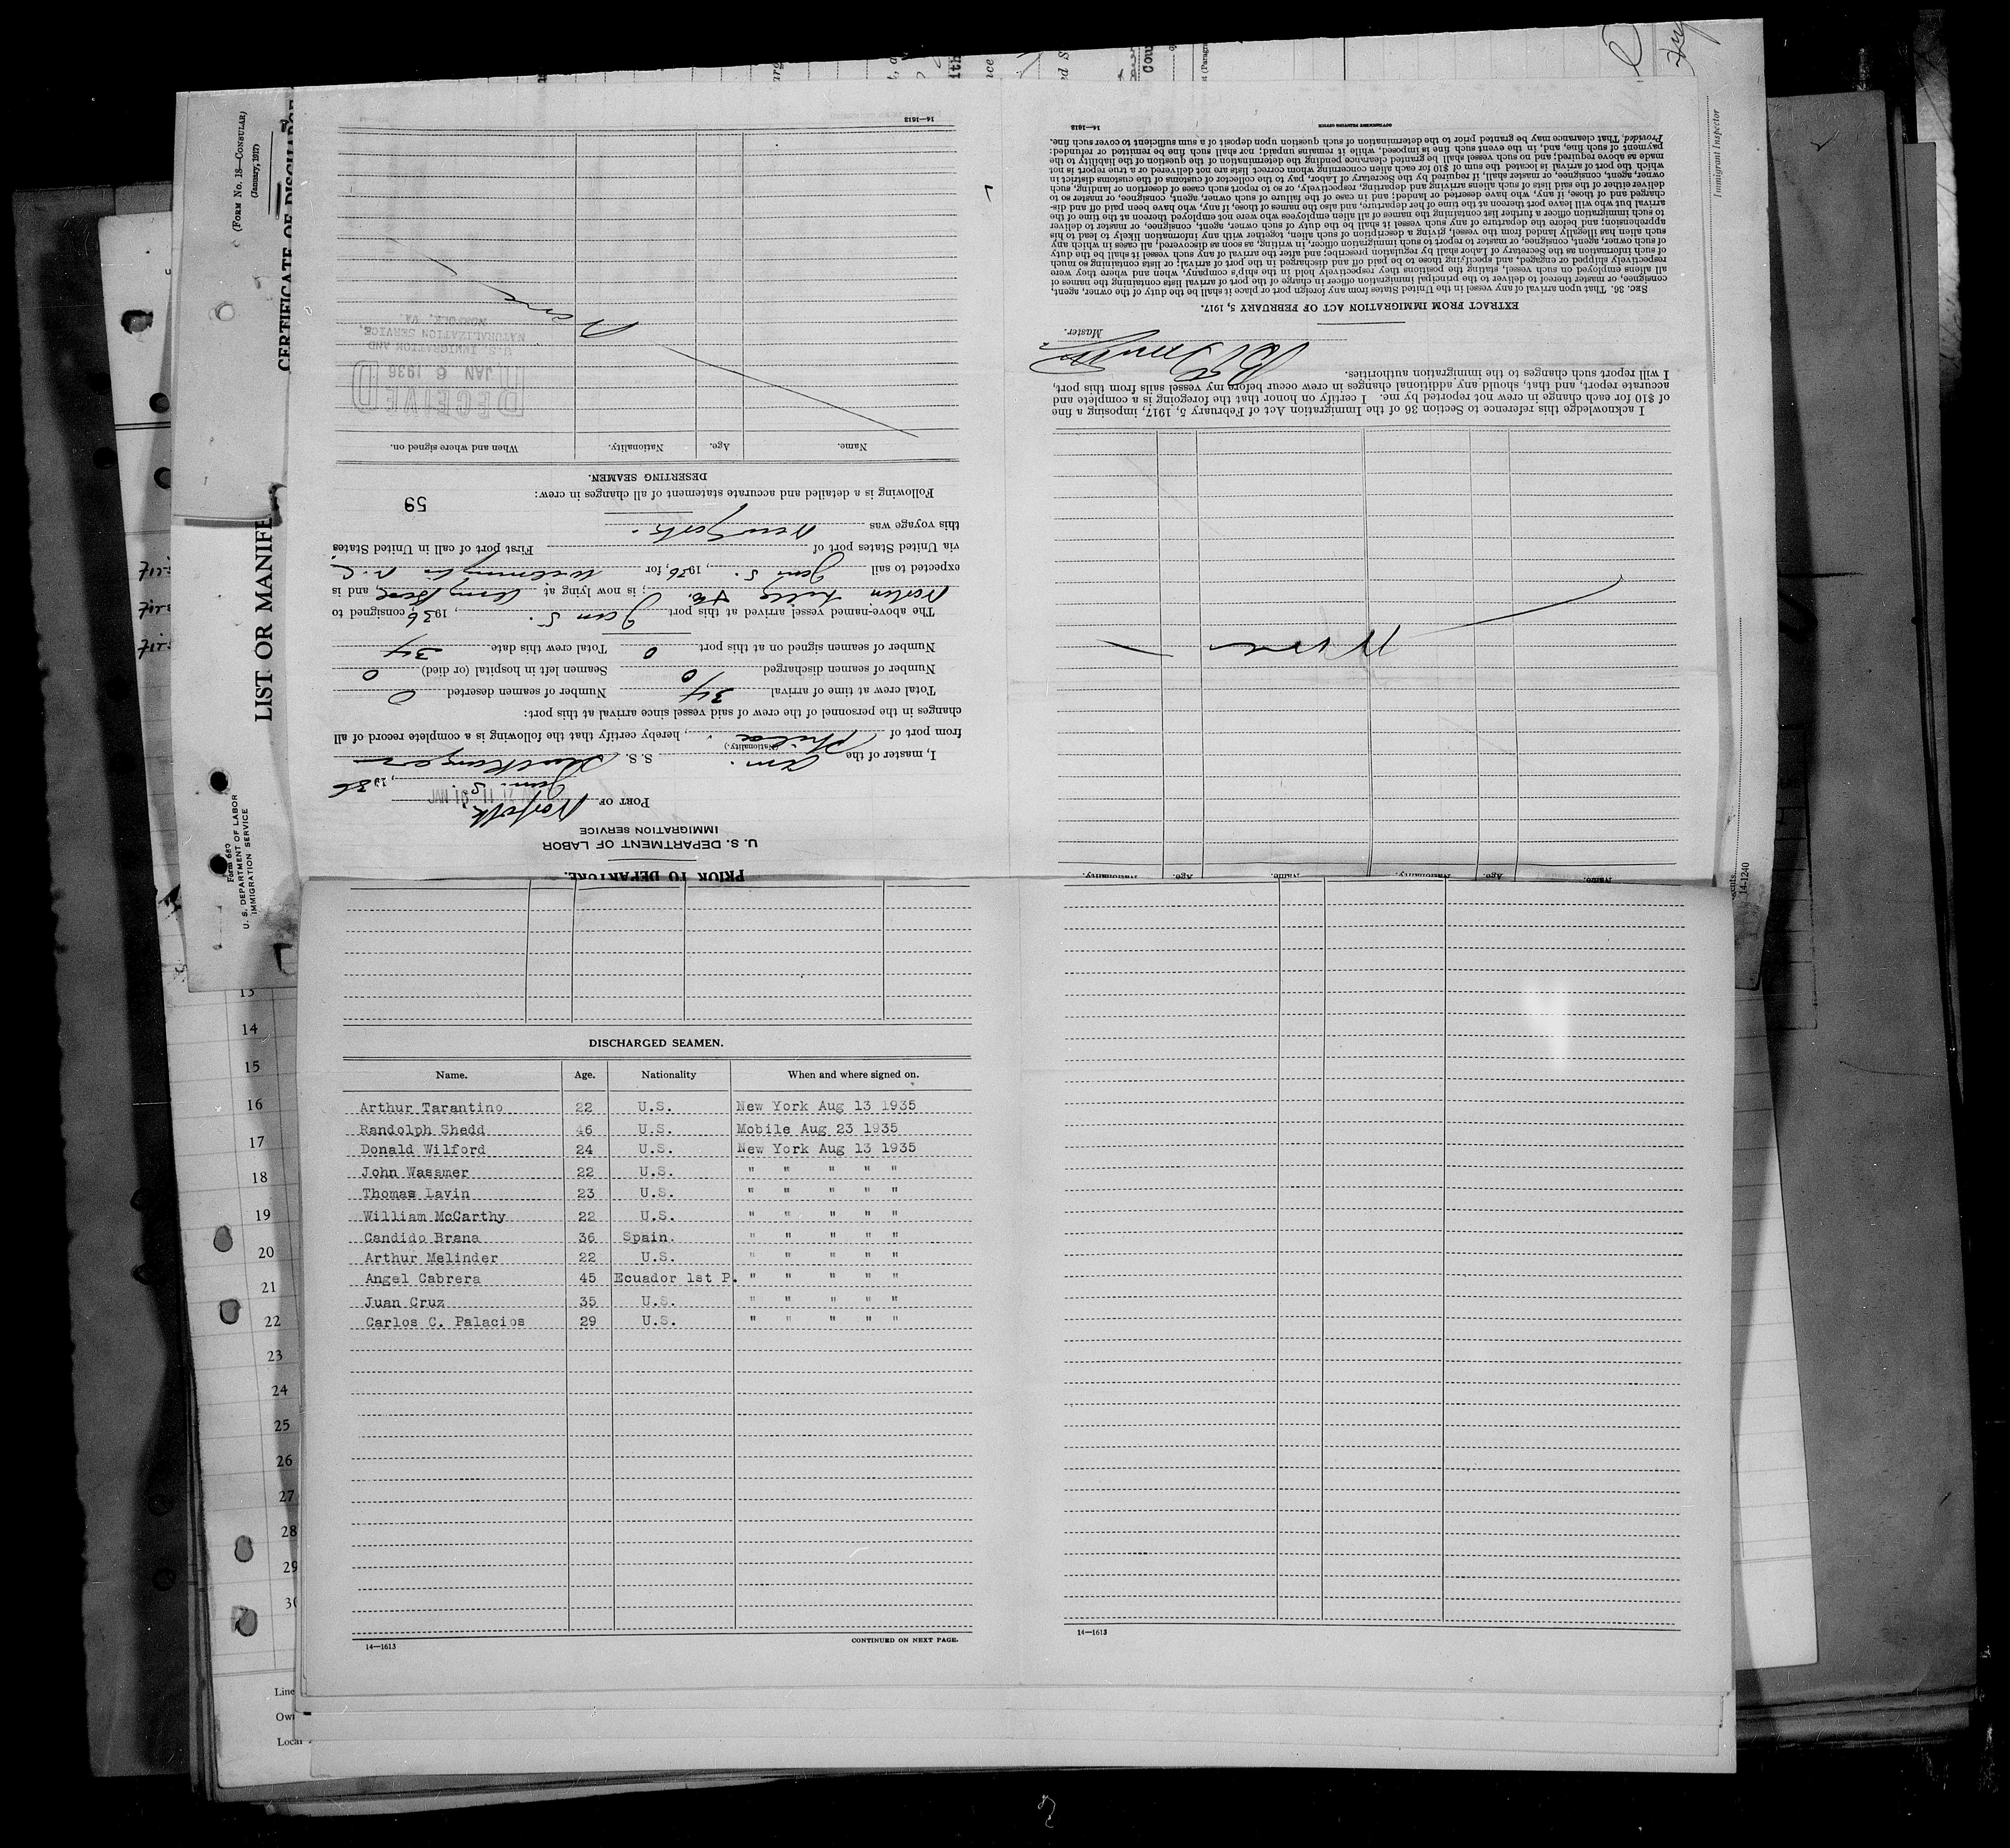 (FORM No. 18—CONSULAR)
(January, 1917)
CERTIFICATE OF DISCHARGE
LIST OR MANIFE
Form 680
U. S. DEPARTMENT OF LABOR
IMMIGRATION SERVICE
PRIOR TO DEPARTURE.
U. S. DEPARTMENT OF LABOR
IMMIGRATION SERVICE
PORT OF Norfolk,
Jan. 5, 1936
I, master of the Am. S. S.
(Nationality.)
from port of Phila, hereby certify that the following is a complete record of all
changes in the personnel of the crew of said vessel since arrival at this port:
Total crew at time of arrival 34 Number of seamen deserted 0
Number of seamen discharged 0 Seamen left in hospital (or died) 0
Number of seamen signed on at this port 0 Total crew this date 34
The above-named vessel arrived at this port Jan 5. , 1936 consigned to
Norton Lilly & Co. , is now lying at Army Base, and is
expected to sail Jan 5. , 1936, for Wilmington N.C.
via United States port of First port of call in United States
this voyage was New York.
Following is a detailed and accurate statement of all changes in crew:
59
DESERTING SEAMEN.
Name. Age. Nationality. When and where signed on.
RECEIVED
JAN 6 1936
U.S. IMMIGRATION AND
NATURALIZATION SERVICE,
NORFOLK, VA.
None
14—1613
Name. Age. Nationality. Name. Age. Nationality.
None
I acknowledge this reference to Section 36 of the Immigration Act of February 5, 1917, imposing a fine
of $10 for each change in crew not reported by me. I certify on honor that the foregoing is a complete and
accurate report, and that, should any additional changes in crew occur before my vessel sails from this port,
I will report such changes to the immigration authorities.
Master.
EXTRACT FROM IMMIGRATION ACT OF FEBRUARY 5, 1917.
SEC. 36. That upon arrival of any vessel in the United States from any foreign port or place it shall be the duty of the owner, agent,
consignee, or master thereof to deliver to the principal immigration officer in charge of the port of arrival lists containing the names of
all aliens employed on such vessel, stating the positions they respectively hold in the ship's company, when and where they were
respectively shipped or engaged, and specifying those to be paid off and discharged in the port of arrival; or lists containing so much
of such information as the Secretary of Labor shall by regulation prescribe; and after the arrival of any such vessel it shall be the duty
of such owner, agent, consignee, or master to report to such immigration officer, in writing, as soon as discovered, all cases in which any
such alien has illegally landed from the vessel, giving a description of such alien, together with any information likely to lead to his
apprehension; and before the departure of any such vessel it shall be the duty of such owner, agent, consignee, or master to deliver
to such immigration officer a further list containing the names of all alien employees who were not employed thereon at the time of the
arrival but who will leave port thereon at the time of her departure, and also the names of those, if any, who have been paid off and dis-
charged and of those, if any, who have deserted or landed; and in case of the failure of such owner, agent, consignee, or master so to
deliver either of the said lists of such aliens arriving and departing, respectively, or so to report such cases of desertion or landing, such
owner, agent, consignee, or master, shall, if required by the Secretary of Labor, pay to the collector of customs of the customs district in
which the port of arrival is located the sum of $10 for each alien concerning whom correct lists are not delivered or a true report is not
made as above required; and no such vessel shall be granted clearance pending the determination of the question of the liability to the
payment of such fine, and, in the event such fine is imposed, while it remains unpaid; nor shall such fine be remitted or refunded:
Provided, That clearance may be granted prior to the determination of such question upon deposit of a sum sufficient to cover such fine.
GOVERNMENT PRINTING OFFICE 14—1613
Immigrant Inspector
14-1240
13
14
15
16
17
18
19
20
21
22
23
24
25
26
27
28
29
30
Line
Own
Local
DISCHARGED SEAMEN.
Name. Age. Nationality When and where signed on.
Arthur Tarantino 22 U.S. New York Aug 13 1935
Randolph Shedd 46 U.S. Mobile Aug 23 1935
Donald Wilford 24 U.S. New York Aug 13 1935
John Wassmer 22 U.S. " " " " "
Thomas Lavin 23 U.S. " " " " "
William McCarthy 22 U.S. " " " " "
Candido Brana 36 Spain. " " " " "
Arthur Melinder 22 U.S. " " " " "
Angel Cabrera 45 Ecuador 1st P. " " " " "
Juan Cruz 35 U.S. " " " " "
Carlos C. Palacios 29 U.S. " " " " "
14—1613 CONTINUED ON NEXT PAGE.
14—1613